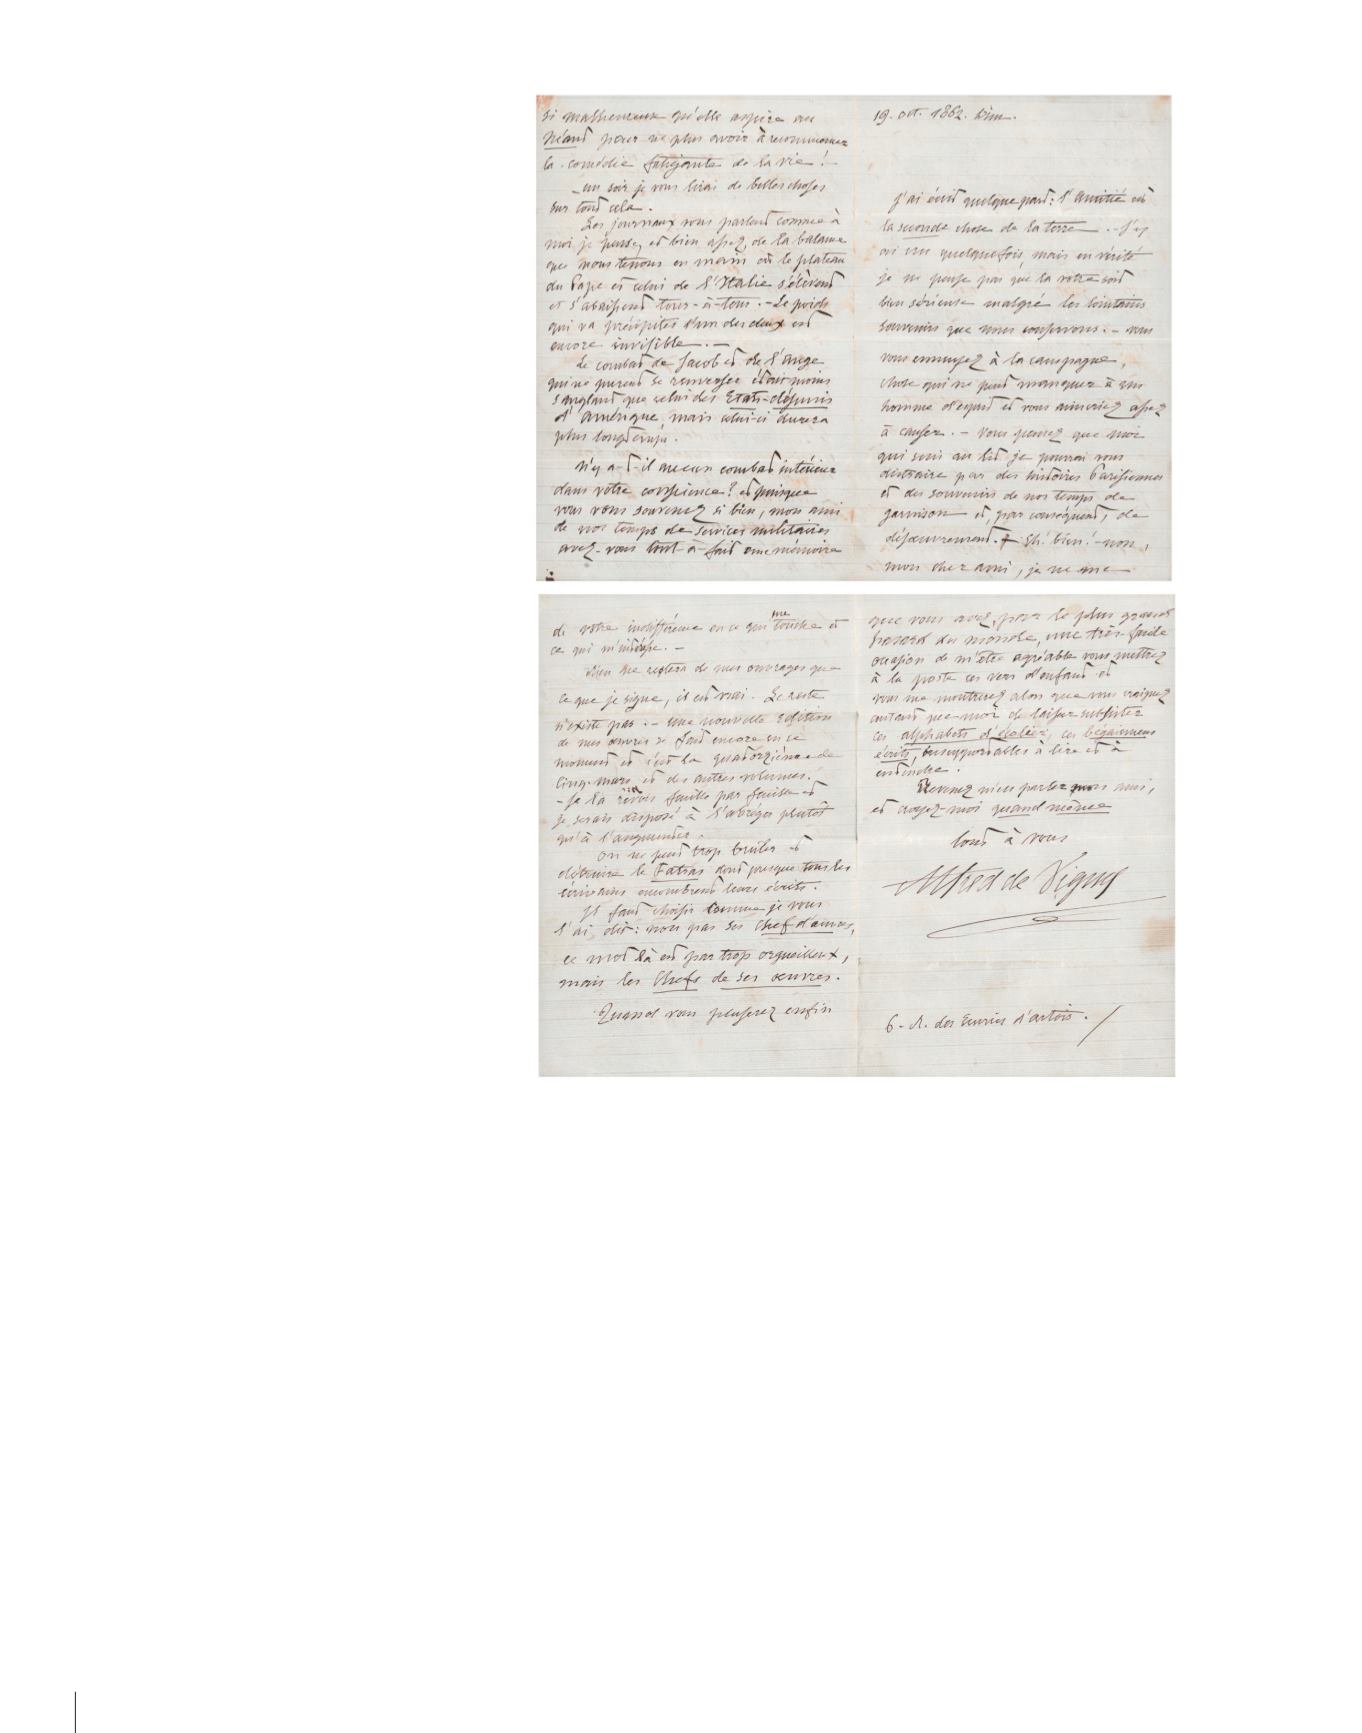 si malheureux qu'elle aspire au
Néant pour ne plus avoir à recommencer
la comédie fatigante de la vie !
– un soir je vous lirai de belles choses
sur tout cela.
Les journaux vous parlent comme à
moi je pense, et bien assez, de la balance
que nous tenons en main où le plateau
du Pape et celui de l'Italie s'élèvent
et s'abaissent tour-à-tour. – Le poids
qui va précipiter l'un des deux est
encore invisible. –
Le combat de Jacob et de l'Ange
qui ne purent se renverser était moins
sanglant que celui des Etats-désunis
d'Amérique, mais celui-ci durera
plus longtemps.
N'y a-t-il aucun combat intérieur
dans votre conscience ? et puisque
vous vous souvenez si bien, mon ami
de nos temps de services militaires
avez-vous tout-à-fait une mémoire
19. oct. 1862. Dim.
J'ai écrit quelque part : l'Amitié est
la seconde chose de la terre. – J'y
ai cru quelquefois, mais en vérité
je ne pense pas que la votre soit
bien sérieuse malgré les lointains
souvenirs que nous conservons. – vous
vous ennuyez à la campagne,
chose qui ne peut manquer à un
homme d'esprit et vous aimeriez assez
à causer. – Vous pensez que moi
qui suis au lit je pourrai vous
distraire par des histoires Parisiennes
et des souvenirs de nos temps de
garnison et, par conséquent, de
désœuvrement. Eh ! bien ! – non,
mon cher ami, je ne me
de votre indifférence en ce qui me touche et
ce qui m'intéresse. –
Rien ne restera de mes ouvrages que
ce que je signe, il est vrai. Le reste
n'existe pas. – une nouvelle Edition
de mes œuvres se fait encore en ce
moment et c'est la quatorzième de
Cinq-mars et des autres volumes.
– Je la revois feuille par feuille et
je serais disposé à l'abréger plutôt
qu'à l'augmenter.
On ne peut trop brûler et
détruire le Fatras dont presque tous les
écrivains encombrent leurs écrits.
Il faut choisir comme je vous
l'ai dit : non pas ses Chef d'œuvres,
ce mot là est par trop orgueilleux,
mais les Chefs de ses œuvres.
Quand vous penserez enfin
que vous avez, par le plus grand
hasard du monde, une très facile
occasion de m'être agréable vous mettrez
à la poste ces vers d'enfant et
vous me montrerez alors que vous craignez
autant que moi de laisser subsister
ces alphabets d'écolier, ces bégaiemens
écrits, insupportables à lire et à
entendre.
Revenez m'en parler mon ami,
et croyez-moi quand même
tout à vous
Alfred de Vigny
6 - R. des Ecuries d'artois.